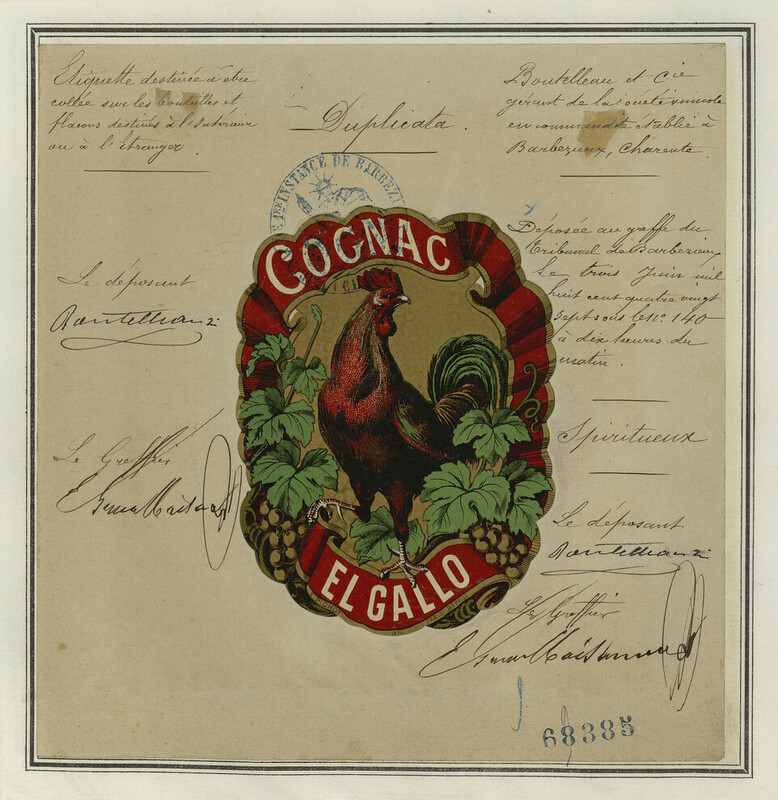 Etiquette destinée à être
collée sur les bouteilles et
flacons destinés à l'Intérieur
ou à l'Etranger.
Duplicata.
Boutelleau et Cie
gérant de la société vinicole
en commandite établie à
Barbezieux, Charente.
1RE INSTANCE DE BARBEZI
COGNAC
Déposée au greffe du
Tribunal de Barbezieux
Le trois Juin mil
huit cent quatre vingt
sept sous le No. 140
à dix heures du
matin.
Le déposant
Boutelleau
Spiritueux
Le Greffier
Le déposant
Boutelleau
EL GALLO
Le Greffier
68385